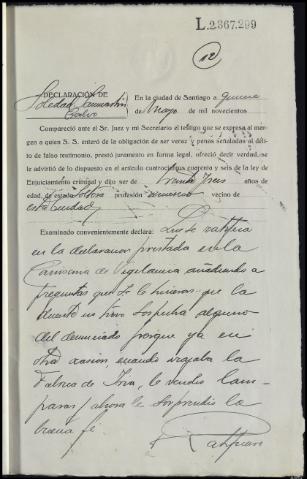 L.2367.299
12
DECLARACIÓN DE
Soledad
Calvo
En la ciudad de Santiago a quince
de Mayo de mil novecientos
Compareció ante el Sr. Juez y mi Secretario el testigo que se expresa al mar-
gen a quien S. S. enteró de la obligación de ser veraz y penas señaladas al de-
lito de falso testimonio, prestó juramento en forma legal, ofreció decir verdad, se
le advirtió de lo dispuesto en el artículo cuatrocientos cuarenta y seis de la ley de
Enjuiciamiento criminal y dijo ser de treinta y tres años de
edad, de estado soltera profesión vecino de
esta Ciudad
Examinado convenientemente declara: Que se ratifica
en la declaracion prestada en la
Comisaria de Vigilancia añadiendo a
preguntas que se le hicieron que la
no tuvo sospecha alguna
del denunciado porque ya en
otra ocasion, cuando viajaba la
Fabrica de le vendio lam-
paras y ahora le sorprendio la
buena fé